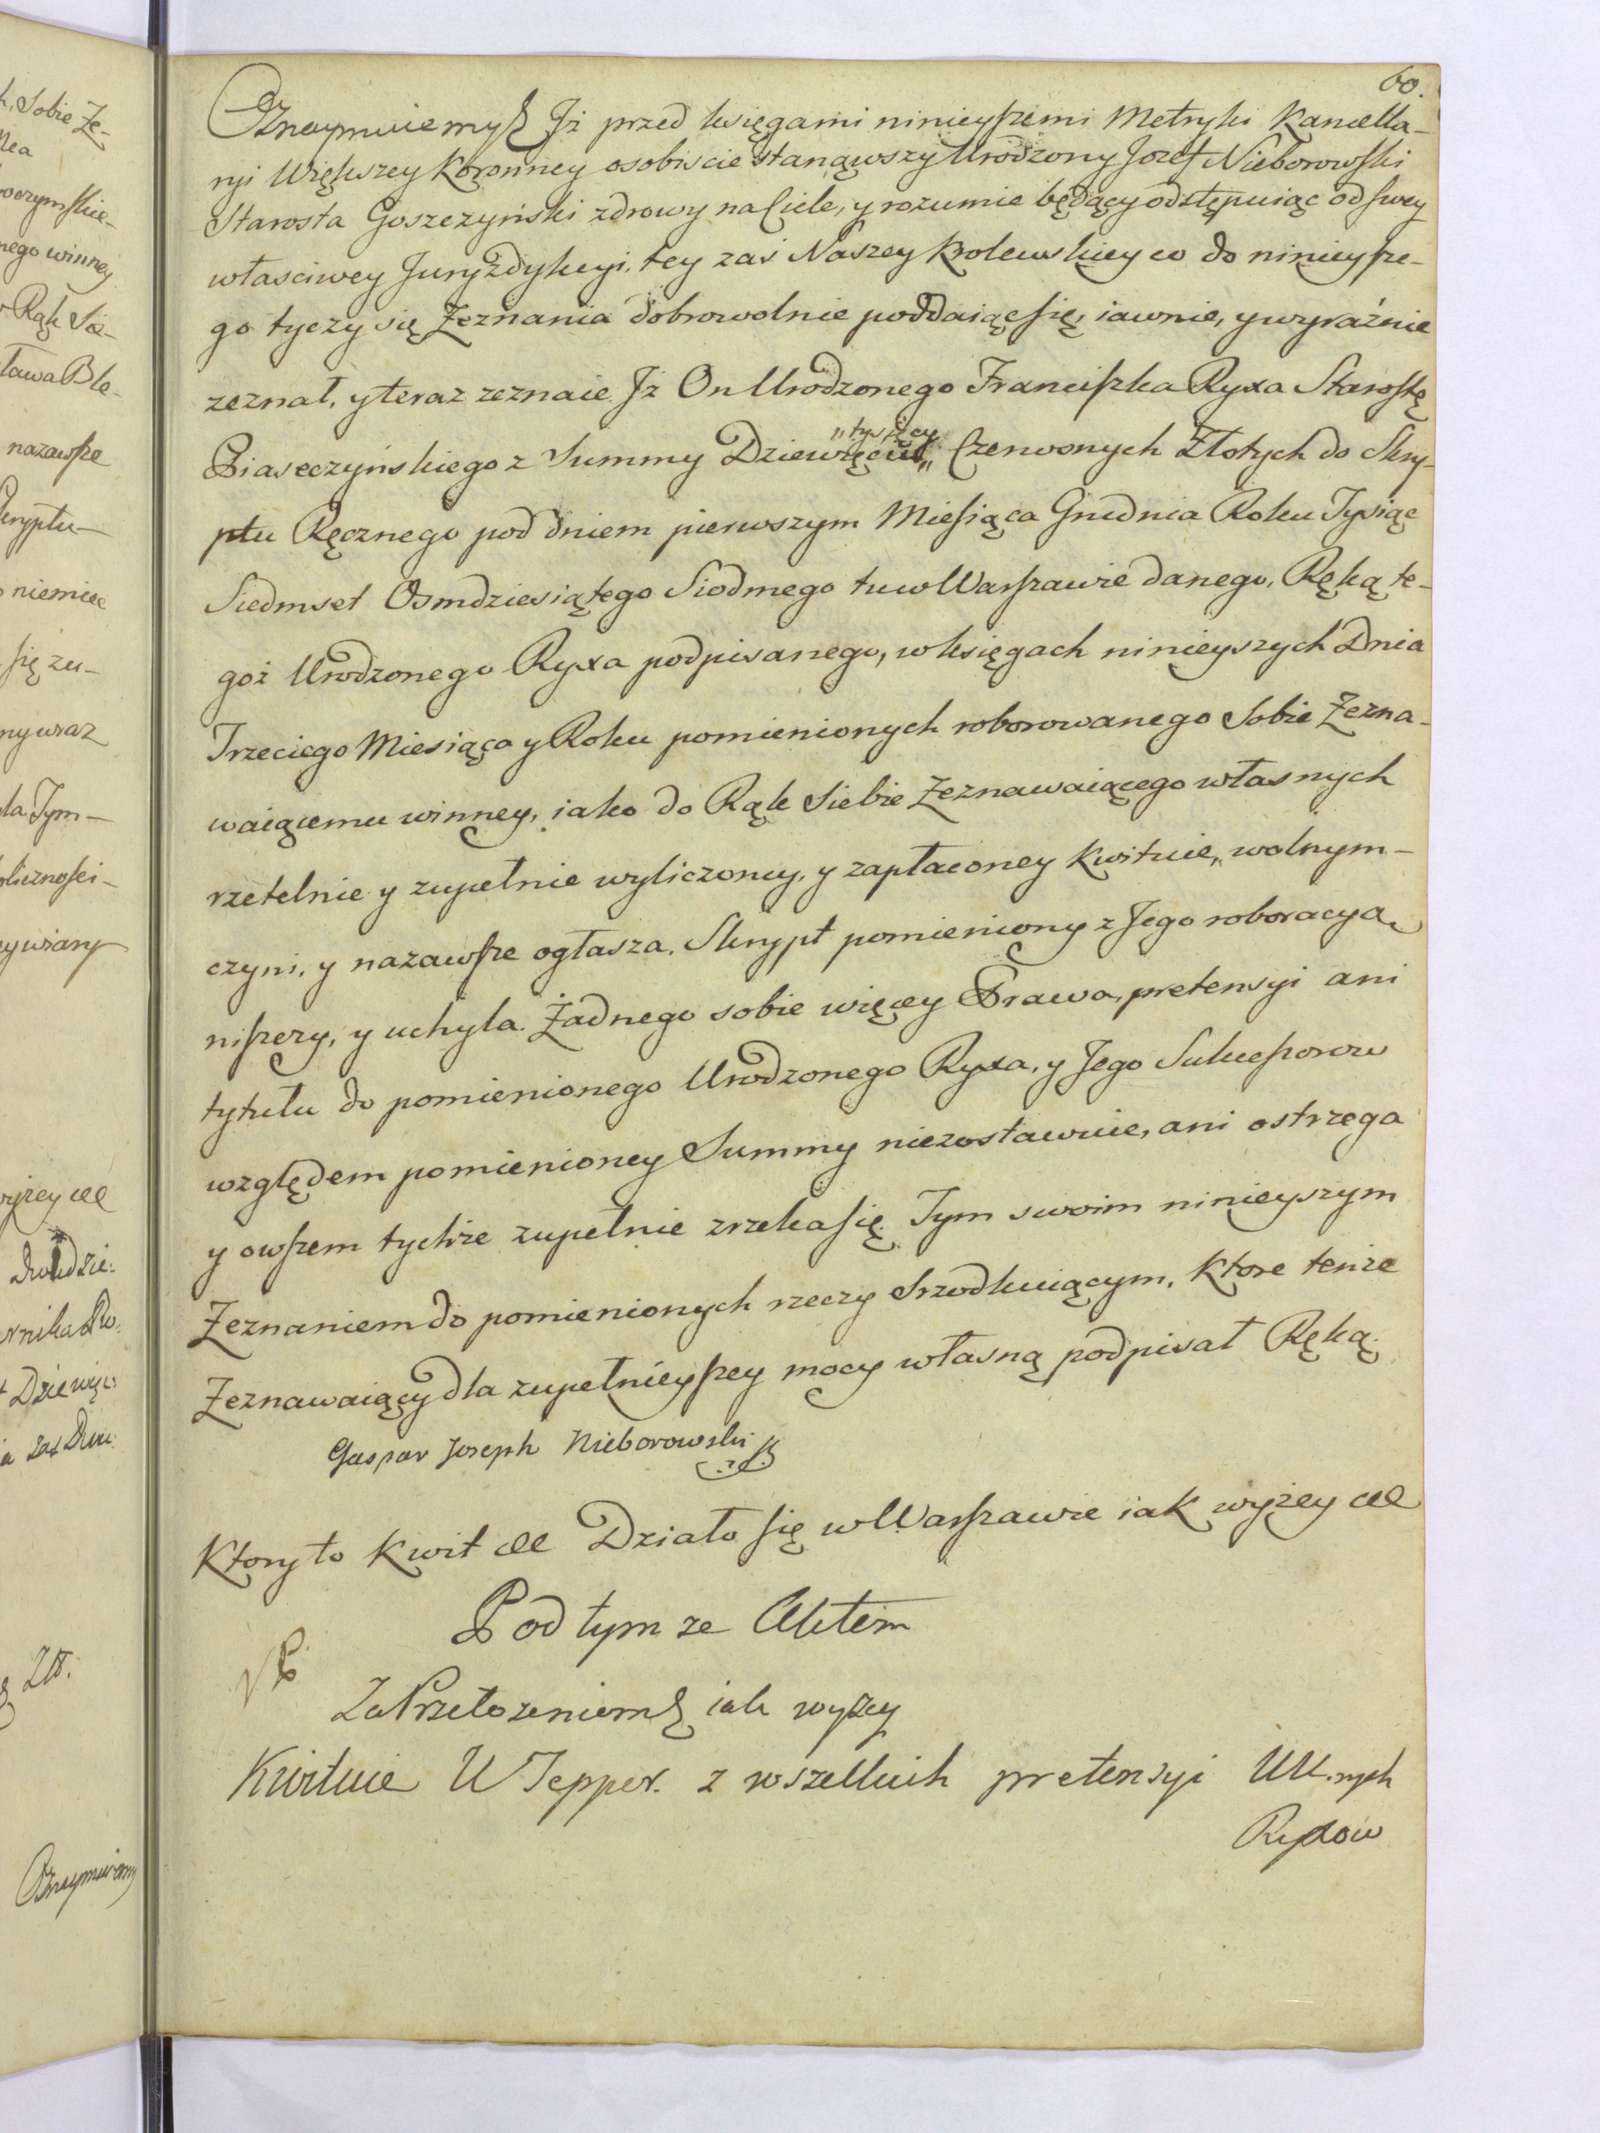 60.
Oznaymuiemy Jż przed księgami ninieyszemi Metryki Kancella-
ryi Większey Koronney osobiscie stanąwszy Urodzony Jozef Nieborowski
Starosta Goszczyński zdrowy na Ciele, y rozumie będący odstępuiąc od swey
własciwey Juryzdykcyi, tey zaś Naszey Krolewskiey co do ninieysze-
go tyczy się Zeznania dobrowolnie poddaiąc się, iawnie, y wyraźnie
zeznał, y teraz zeznaie Jż On Urodzonego Franciszka Ryxa Starostę
Piaseczyńskiego z Summy Dziewięciu „tysięcy„ Czerwonych Złotych do Skry-
ptu Ręcznego pod dniem pierwszym Miesiąca Grudnia Roku Tysiąc
Siedmset Osmdziesiątego Siodmego tu w Warszawie danego, Ręką te-
goż Urodzonego Ryxa podpisanego, w księgach ninieyszych Dnia
Trzeciego Miesiąca y Roku pomienionych roborowanego Sobie Zezna-
waiącemu winney, iako do Rąk Siebie Zeznawaiącego własnych
rzetelnie y zupełnie wyliczoney, y zapłaconey kwituie, wolnym-
czyni, y nazawsze ogłasza. Skrypt pomieniony z Jego roboracyą
niszczy, y uchyla. Żadnego sobie więcey Prawa, pretensyi ani
tytułu do pomienionego Urodzonego Ryxa, y Jego Sukcessorow
względem pomienioney Summy niezostawuie, ani ostrzega
y owszem tychże zupełnie zrzeka się. Tym swoim ninieyszym
Zeznaniem do pomienionych rzeczy Srzodkuiącym, Ktore tenże
Zeznawaiący dla zupełnieyszey mocy własną podpisał Ręką.
Gaspar Joseph Nieborowski
Ktory to Kwit etc Działo się w Warszawie iak wyżey etc
Pod tymże Aktem
Za Przełożeniem iak wyżey
Kwituie U Tepper. z wszelkich pretensyi UU.nych
Ryxow